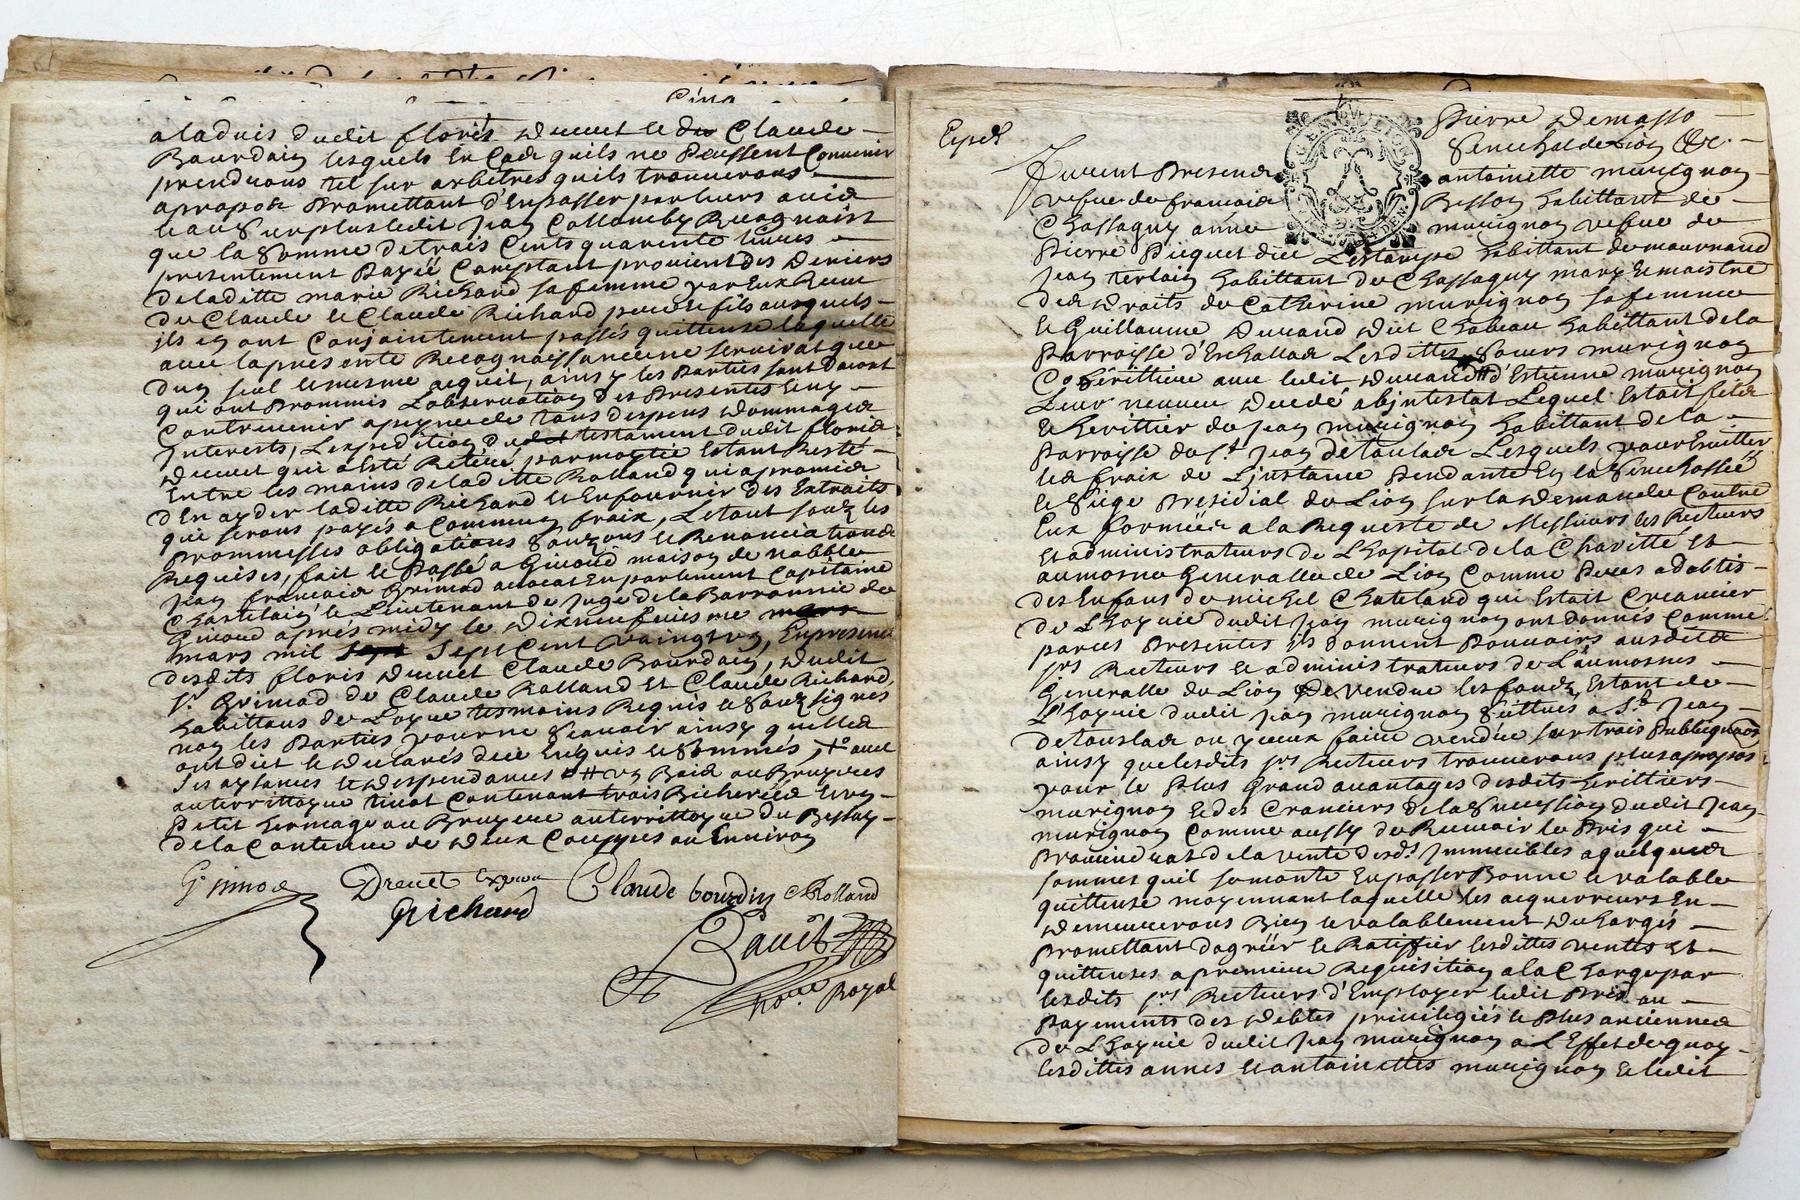 Cinq
a ladvis dudit floris Drevet le dit Claude
Bourdain lesquels En Cas quils ne Peussent Convenir
prendrons tel sur arbitres quils trouverons
apropos Promettant d'En passer par leurs avis
le au Surplus ledit Jean Collomby Recognoist
que la Somme de trois Cents quarente livres
presentement Payéé Comptant provient des Deniers
de laditte marie Richard sa femme par Eux Receu
de Claude le Claude Richard pere le fils ausquels
ils en ont Conjointement passés quittense laquelle
avec la presente Recognoissance ne servirat que
dun seul le mesme acquit, ainsy les Parties sont Dacort
qui ont Prommis L'observation des Presentes le ny
Contrevenir apeyne de tous despens Dommages
Interests, L'expedition dudit testament dudit floris
Drevet qui a Esté Retiré par moytie Estant Resté
Entre les mains de ladite Rolland qui a promis
d'En ayder laditte Richard le En fournir Des Extraits
qui seront payés a Commun fraix, Le tout soubz les
prommesses obligations Soubz le Renonciations
Requises, fait le Passé a Givord maison de nobble
Jean francois Grimod advocat En parlement Capitaine
Chastelain le Lieutenant de Juge de la Barronnie de
Givord aprés midy le Dixneufviesme
mars mil Sept Cent Vaingt un, En presence
desdits floris Drevet Claude Bourdain, Dudit
sr. Grimod de Claude Rolland Et Claude Richard,
habittans de Loyre tesmoins Requis le Soubzsignés
non les Parties pour ne Scavoir ainsy quelles
ont dict le declarés dece Enquis le Sommés, avec
Ses aysances le Despendances # un Bois ou Bruyeres
au territtoyre tinot Contenant trois Bicherées le un
Petit hermage ou Bruyere au territtoyre du Bessay
de la Contenue de Deux Couppes ou Environ
Grimod Drevet Claude bourdin CRolland
Richard
Ravit
nore Royal
Expdt
Pierre Demasso
Senechal de Lion &c.
GENER LION
Furent Presens antoinette murignon
vefve de francois Besson habittant de
Chassagny anne murignon vefve de
Pierre Picquet dict Lestampe habittant de mournand
Jean terlain habittant de Chassagny mary le maistre
des Droits de Catherine murignon sa femme
le Guillaume Durand Dict Chabeau habittant de la
Parroisse d'Eschallas Lesdittes Soeurs murignon
Coherittiere avec ledit Durand # d'Estienne murignon
Leur neveu Decedé abjntestat Lequel Estoit fils
le herittier de Jean murignon habittant de la
Parroisse de St. Jean de toulas Lesquels pour Esvitter
les fraix de L'jnstance Pendante En la Senechaussée
le Siége Presidial de Lion sur la Demande Contre
Eux formée a la Requeste de Messieurs les Recteurs
Et administrateurs de L'hopital de la Charitté Et
aumosne Generalle de Lion Comme Peres adoptifs
des Enfans de michel Chateland qui Estoit Creancier
de L'hoyrie dudit Jean murignon ont donnés Comme
par ces Presentes jls donnent Pouvoirs ausdits
srs Recteurs le administrateurs de L'aumosne
Generalle de Lion De Vendre les fondz Estant de
L'hoyrie dudit Jean murignon Sittués a St. Jean
de touslas ou yceux faire vendre sur trois Publications
ainsy que lesdits srs Recteurs trouverons plus apropos
pour le Plus Grand avantages desdits herittiers
murignon le des Creanciers de la Succession dudit Jean
murignon Comme aussy de Recevoir le Pris qui
Proviendrat de la vente desds. Jmmeubles a quelques
sommes quil se monte En passer Bonne le valable
quittense moyennant laquelle les acquerreurs En
demeurerons Bien le valablement Dechargés
Promettant dagréer le Ratiffier lesdittes ventes Et
quittenses a premiere Requisition a la Charge par
lesdits srs Recteurs d'Employer ledit Pris au
Payements des Debtes privilegiés le Plus anciennes
de L'hoyrie dudit Jean murignon a L'Effet de quoy
lesdittes annes Et antoinettes murignon le ledit